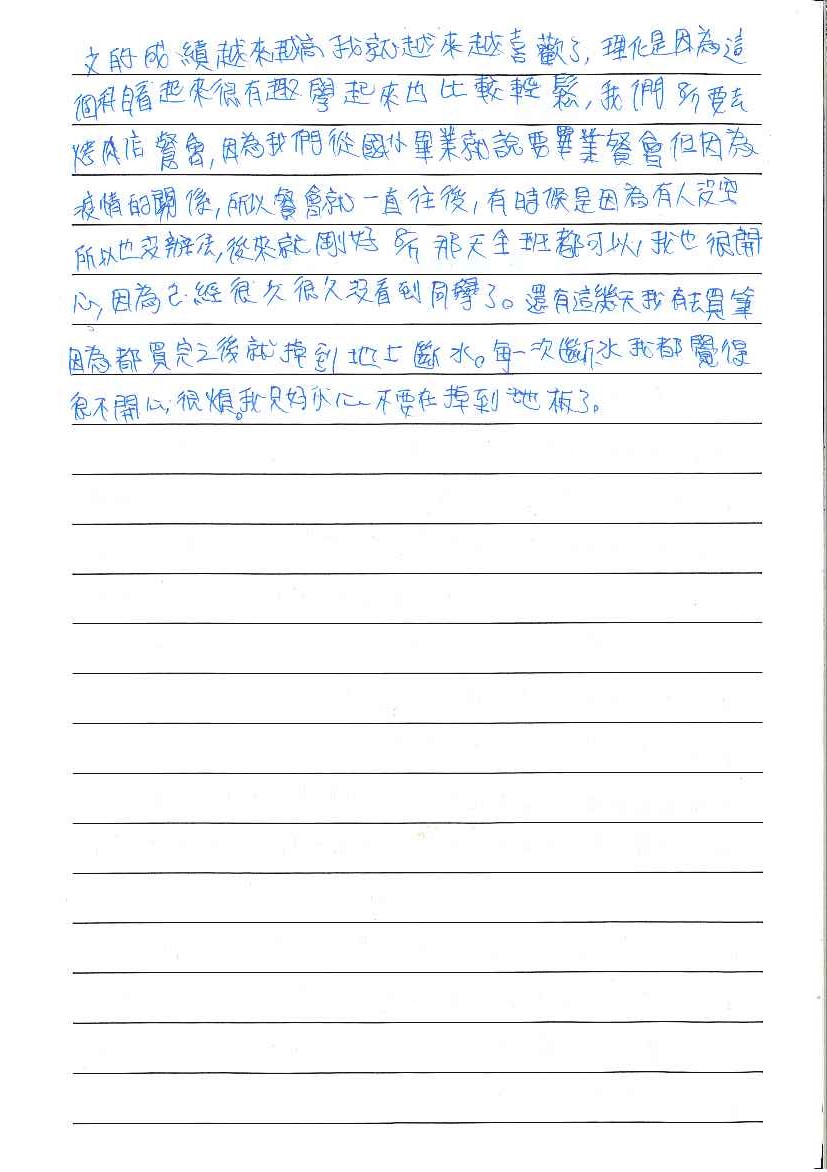 文的成績越來越高我就越來越喜歡了,理化是因為這
個科目看起來很有趣學起來也比較輕鬆,我們8/5要去
烤肉店餐會,因為我們從國小畢業就說要畢業餐會但因為
疫情的關係,所以餐會就一直往後,有時候是因為有人沒空
所以也沒辦法,後來就剛好8/5那天全班都可以,我也很開
心,因為已經很久很久沒看到同學了。還有這幾天我有去買筆
因為都買完之後就掉到地上斷水。每一次斷水我都覺得
很不開心,很煩。我只好小心不要在掉到地板了。